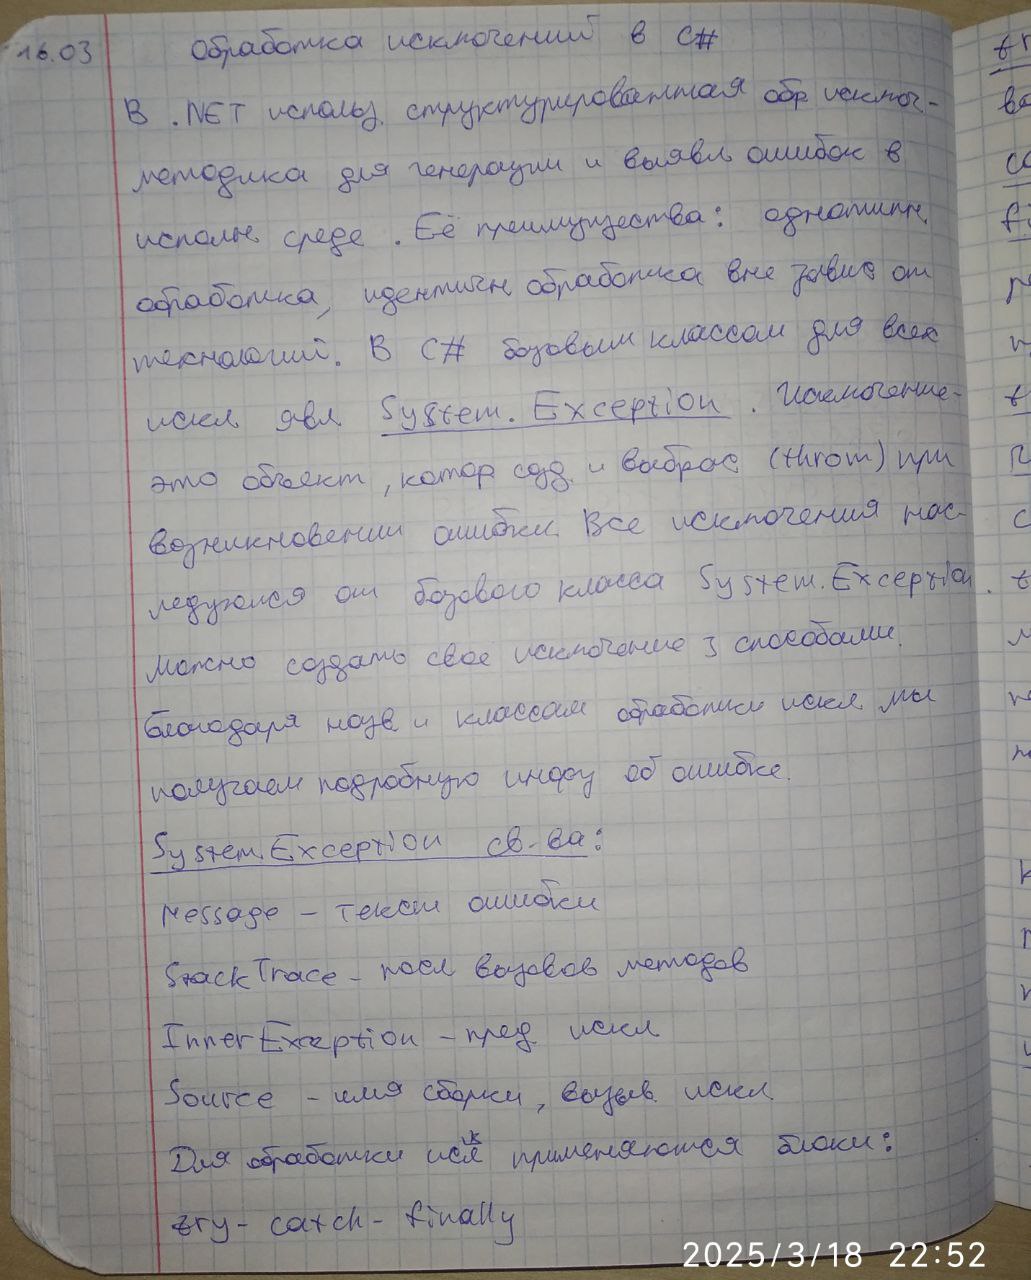 16.03 Обработка исключений в C#
В .NET использ. структурированная обр исключ-
методика для генерации и выявл ошибок в
исполн. среде. Её преимущества: однотипн.
обработка, идентичн обработка вне завис от
технологий. В C# базовым классом для всех
искл явл System.Exception. Исключение-
это объект, котор созд. и выброс (throw) при
возникновении ошибки. Все исключения нас-
ледуются от базового класса System.Exception.
Можно создать свое исключение 3 способами.
Благодаря назв и классам обработки искл мы
получаем подробную инфу об ошибке.
System.Exception св-ва:
Message - текст ошибки
StackTrace - посл вызовов методов
InnerException - пред искл
Source - имя сборки, вызыв. искл
Для обработки искл применяются блоки:
try - catch - finally
2025/3/18 22:52